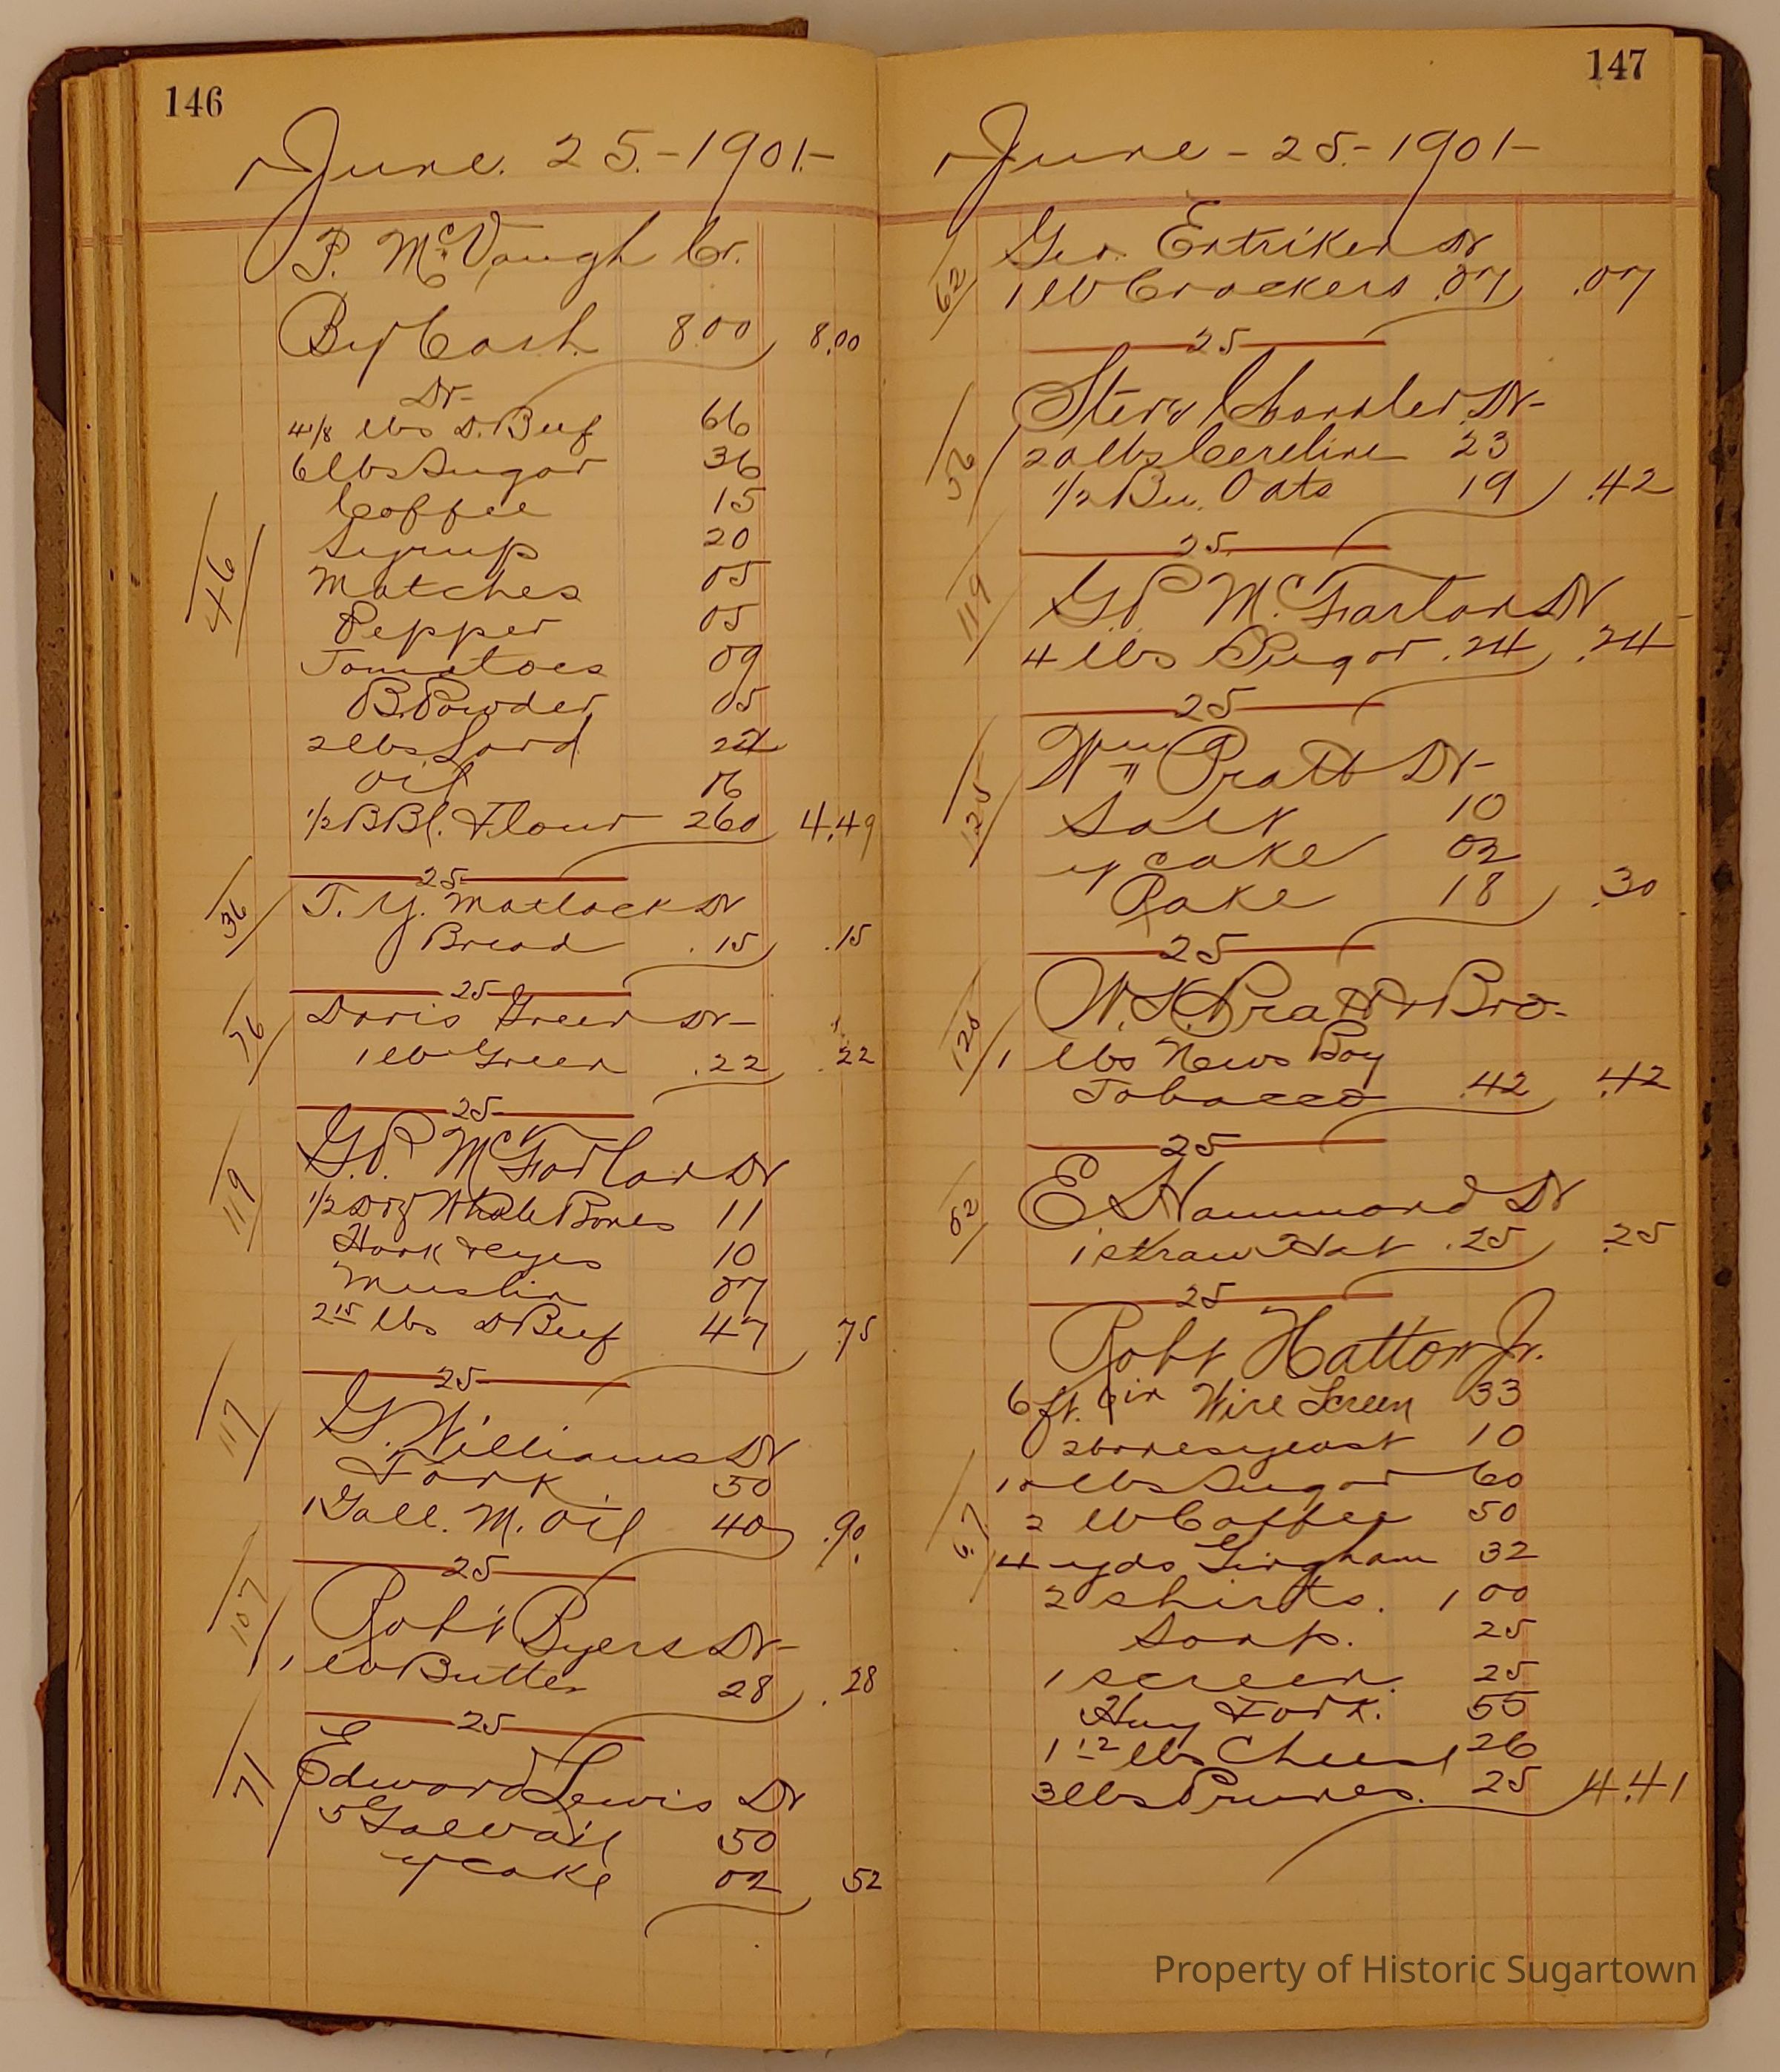 146
June. 25.-1901.-
P. McVaugh Cr.
By Cash. 8.00 8.00
Dr-
4 1/8 lbs D. Beef 66
6 lbs Sugar 36
Coffee 15
Syrup 20
Matches 05
Pepper 05
Tomatoes 09
B. Powder 05
2 lbs Lard 24
Oil
1/2 BBl. Flour 260 4.49
46
25
36 T. Y. Matlack Dr
Bread .15 .15
25
76 Davis Green Dr-
1 lb Green .22 .22
25
119 G.P. McFarlan Dr
1/2 Doz Whale Bones 11
Hook & eyes 10
Muslin 07
2 15 lbs D Beef 47 75
25
117 G. Williams Dr
Fork. 50
1 Gall. M. Oil 40 .90.
25
107 Robt Byers Dr-
1 lb Butter 28 .28
25
71 Edward Lewis Dr
5 Gal Oil 50
y cake 02 52
147
June - 25.- 1901-
62 Geo. Entriken Dr
1 lb Crackers .07 .07
25
56 Steve Chandler Dr-
20 lbs Cereline 23
1/2 Bu. Oats 19 .42
25
119 G.P. McFarlan Dr
4 lbs Sugar .24 .24
25
125 Wm Pratt Dr-
Salt 10
y cake 02
Rake 18 .30
25
W. K. Pratt & Bro-
1 lbs News Boy
Tobacco .42 .42
25
52 E. Hammond Dr
1 straw Hat .25 .25
25
Robt Hatton Jr.
6 ft. 6 in Wire Screen 33
2 bones yeast 10
10 lbs Sugar 60
2 lb Coffee 50
4 yds Gingham 32
2 shirts. 1 00
Soap. 25
1 screen. 25
Hay Fork. 55
1 12 lbs Cheese 26
3 lbs Prunes. 25 4.41
Property of Historic Sugartown